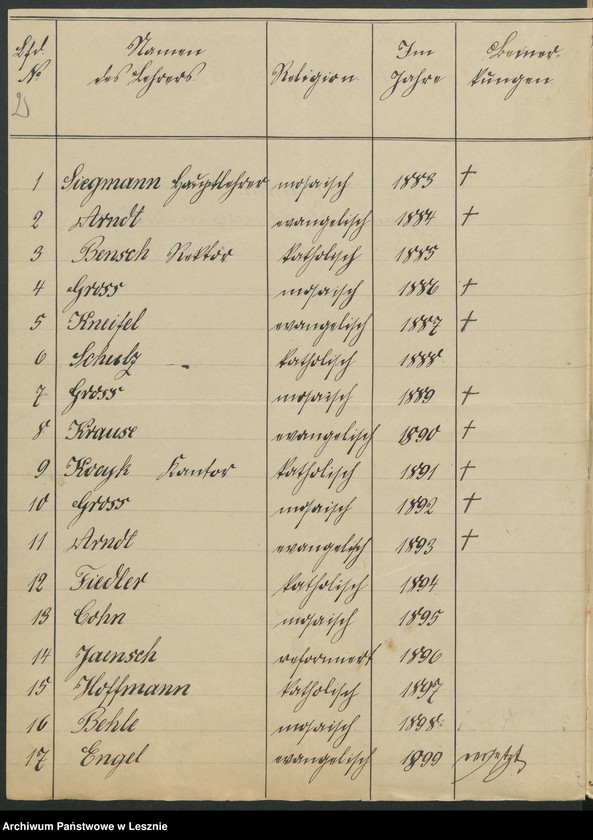 Lfd. Namen Religion. Im Bemer-
No des Lehrers Jahre kungen.
1 Siegmann Hauptlehrer mosaisch 1883 †
2 Arndt evangelisch 1884 †
3 Bensch Rektor katholisch 1885
4 Gross mosaisch 1886 †
5 Kneifel evangelisch 1887 †
6 Schulz katholisch 1888
7 Gross mosaisch 1889 †
8 Krause evangelisch 1890 †
9 Kantor katholisch 1891 †
10 Gross mosaisch 1892 †
11 Arndt evangelisch 1893 †
12 Fiedler katholisch 1894
13 Cohn mosaisch 1895
14 Jaensch reformiert 1896
15 Hoffmann katholisch 1897
16 Behle mosaisch 1898
17 Engel evangelisch 1899 versetzt
Archiwum Państwowe w Lesznie